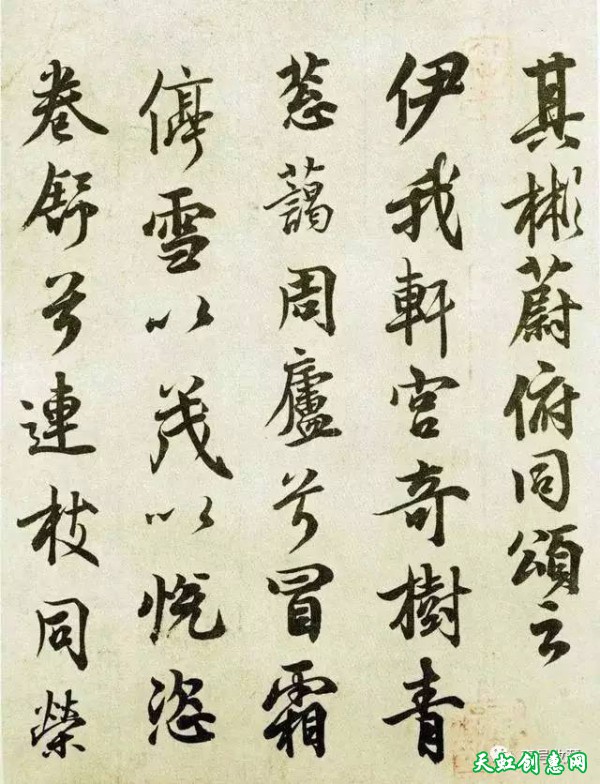 其彬蔚俯同頌云
伊我軒宫奇樹青
葱藹周廬兮冒霜
停雪以茂以悦恣
卷舒兮連枝同榮
天虹创惠网